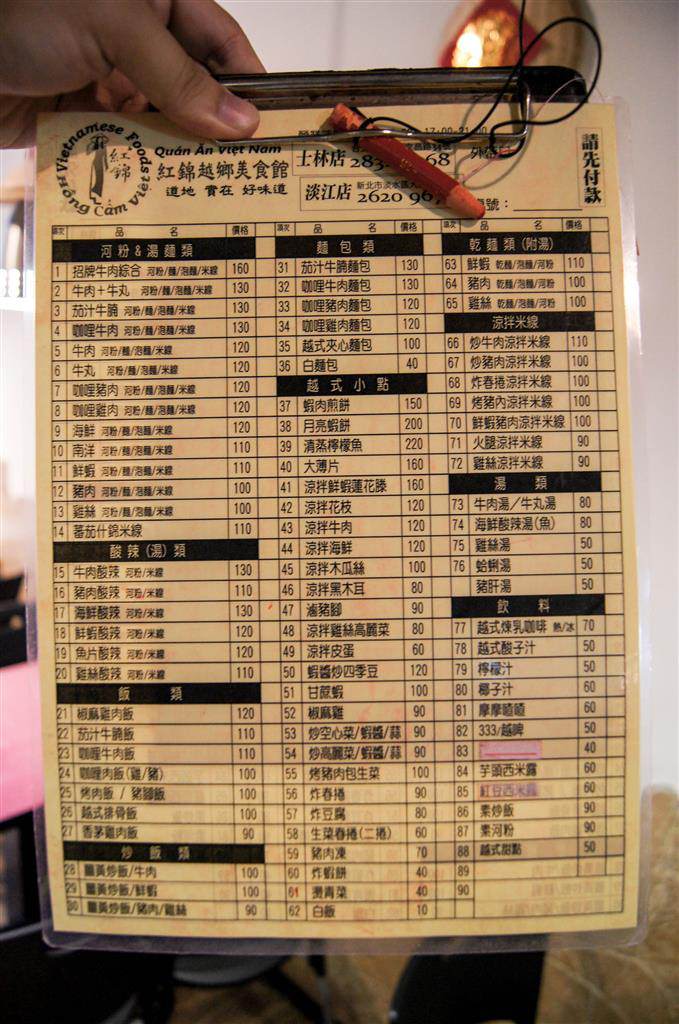 Vietnamese Foods
紅錦
Hồng Cẩm Việt
Quán Ăn Việt Nam
紅錦越鄉美食館
道地 實在 好味道
17:00-21:00
士林店 283 68
淡江店 新北市淡水區 2620 96
請先付款
項次 品名 價格
河粉&湯麵類
1 招牌牛肉綜合 河粉/麵/泡麵/米線 160
2 牛肉+牛丸 河粉/麵/泡麵/米線 130
3 茄汁牛腩 河粉/麵/泡麵/米線 130
4 咖哩牛肉 河粉/麵/泡麵/米線 130
5 牛肉 河粉/麵/泡麵/米線 120
6 牛丸 河粉/麵/泡麵/米線 120
7 咖哩豬肉 河粉/麵/泡麵/米線 120
8 咖哩雞肉 河粉/麵/泡麵/米線 120
9 海鮮 河粉/麵/泡麵/米線 120
10 南洋 河粉/麵/泡麵/米線 110
11 鮮蝦 河粉/麵/泡麵/米線 110
12 豬肉 河粉/麵/泡麵/米線 100
13 雞絲 河粉/麵/泡麵/米線 100
14 蕃茄什錦米線 110
酸辣(湯)類
15 牛肉酸辣 河粉/米線 130
16 豬肉酸辣 河粉/米線 110
17 海鮮酸辣 河粉/米線 130
18 鮮蝦酸辣 河粉/米線 120
19 魚片酸辣 河粉/米線 120
20 雞絲酸辣 河粉/米線 110
飯類
21 椒麻雞肉飯 120
22 茄汁牛腩飯 110
23 咖哩牛肉飯 110
24 咖哩肉飯(雞/豬) 100
25 烤肉飯/豬腳飯 100
26 越式排骨飯 100
27 香茅雞肉飯 90
炒飯類
28 薑黃炒飯/牛肉 100
29 薑黃炒飯/鮮蝦 100
30 薑黃炒飯/豬肉/雞絲 90
項次 品名 價格
麵包類
31 茄汁牛腩麵包 130
32 咖哩牛肉麵包 130
33 咖哩豬肉麵包 120
34 咖哩雞肉麵包 120
35 越式夾心麵包 100
36 白麵包 40
越式小點
37 蝦肉煎餅 150
38 月亮蝦餅 200
39 清蒸檸檬魚 220
40 大薄片 160
41 涼拌鮮蝦蓮花藤 160
42 涼拌花枝 120
43 涼拌牛肉 120
44 涼拌海鮮 120
45 涼拌木瓜絲 100
46 涼拌黑木耳 80
47 滷豬腳 90
48 涼拌雞絲高麗菜 80
49 涼拌皮蛋 60
50 蝦醬炒四季豆 120
51 甘蔗蝦 100
52 椒麻雞 90
53 炒空心菜/蝦醬/蒜 90
54 炒高麗菜/蝦醬/蒜 90
55 烤豬肉包生菜 100
56 炸春捲 90
57 炸豆腐 80
58 生菜春捲(二捲) 60
59 豬肉凍 70
60 炸蝦餅 40
61 燙青菜 40
62 白飯 10
項次 品名 價格
乾麵類(附湯)
63 鮮蝦 乾麵/泡麵/河粉 110
64 豬肉 乾麵/泡麵/河粉 100
65 雞絲 乾麵/泡麵/河粉 100
涼拌米線
66 炒牛肉涼拌米線 110
67 炒豬肉涼拌米線 100
68 炸春捲涼拌米線 100
69 烤豬肉涼拌米線 100
70 鮮蝦豬肉涼拌米線 100
71 火腿涼拌米線 90
72 雞絲涼拌米線 90
湯類
73 牛肉湯/牛丸湯 80
74 海鮮酸辣湯(魚) 80
75 雞絲湯 50
76 蛤蜊湯 50
豬肝湯 50
飲料
77 越式煉乳咖啡 熱/冰 70
78 越式酸子汁 50
79 檸檬汁 60
80 椰子汁 60
81 摩摩喳喳 60
82 333/越啤 50
83 40
84 芋頭西米露 60
85 紅豆西米露 60
86 素炒飯 90
87 素河粉 90
88 越式甜點 50
89
90